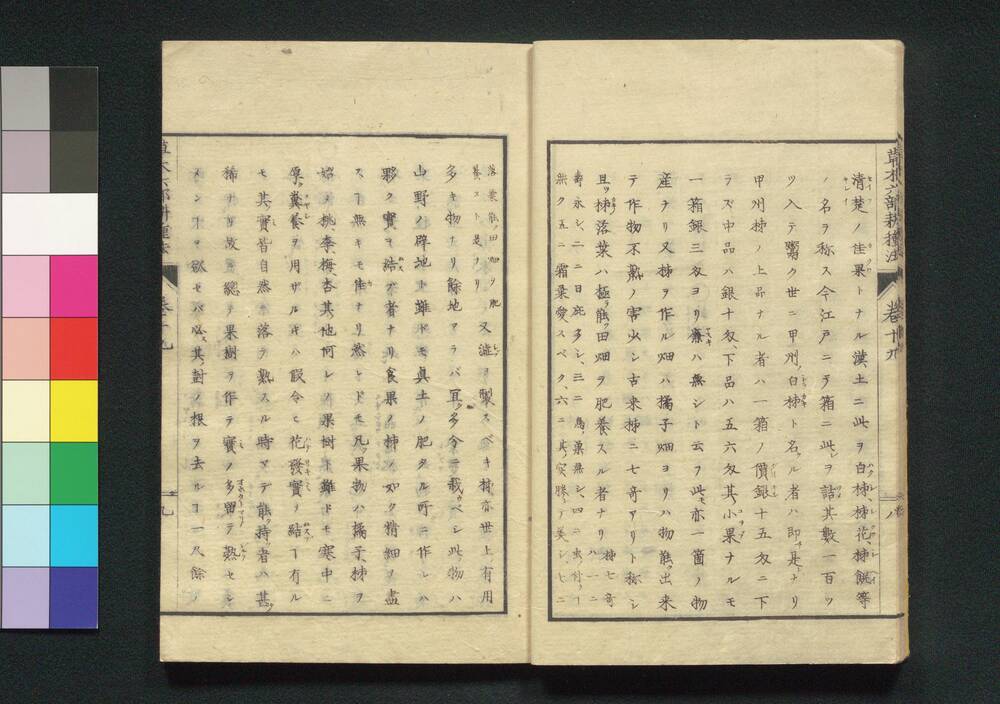 草木六部耕種法 卷十九 八
清楚ノ佳果トナル漢土ニ此ヲ白柹、柹花、柹餻等
ノ名ヲ称ス今江戸ニテ箱ニ此ヲ詰其數一百ツ
ツ入テ鬻ク世ニ甲州白柹ト名ル者ハ即是ナリ
甲州柹ノ上品ナル者ハ一箱ノ價銀十五匁ニ下
ラズ中品ハ銀十匁、下品ハ五六匁其小果ナルモ
一箱銀三匁ヨリ廉ハ無シト云フ此モ亦一箇ノ物
産ナリ又柹ヲ作ル畑ハ橘子畑ヨリハ物能出来
テ作物不熟ノ害少シ古来柹ニ七奇アリト称シ
且柹落葉ハ極テ能田畑ヲ肥養スル者ナリ 柹七奇ハ一ニ
壽永シ、二ニ日庇多シ、三ニ鳥巢無シ、四ニ虫付ヿ
無ク五ニ霜葉愛スベク、六ニ其実勝テ美シ、七ニ
落葉能ク田畑ヲ肥
養スト是ナリ 又澁ヲ製スベキ柹亦世上有用
多キ物ナリ餘地アラバ宜ク多分ニ栽ベシ此物ハ
山野ノ僻地ト雖ドモ真土ノ肥タル所ニ作レハ
夥ク實ヲ結フ者ナリ食果ノ柹ノ如ク精細ヲ盡
スヿ無キモ佳ナリ然レドモ凡果物ハ橘子、柹ヲ
始メ桃李梅杏其他何レノ果樹ト雖ドモ寒中ニ
厚ク糞養ヲ用ザルキハ假令ヒ花發實ヲ結ヿ有ル
モ其實皆自然ト落テ熟スル時マデ能持者ハ甚
稀ナリ故ニ總テ果樹ヲ作テ實ノ多留テ熟セシ
メンヿヲ欲セバ必其樹ノ根ヲ去ルヿ一尺餘ノ
九